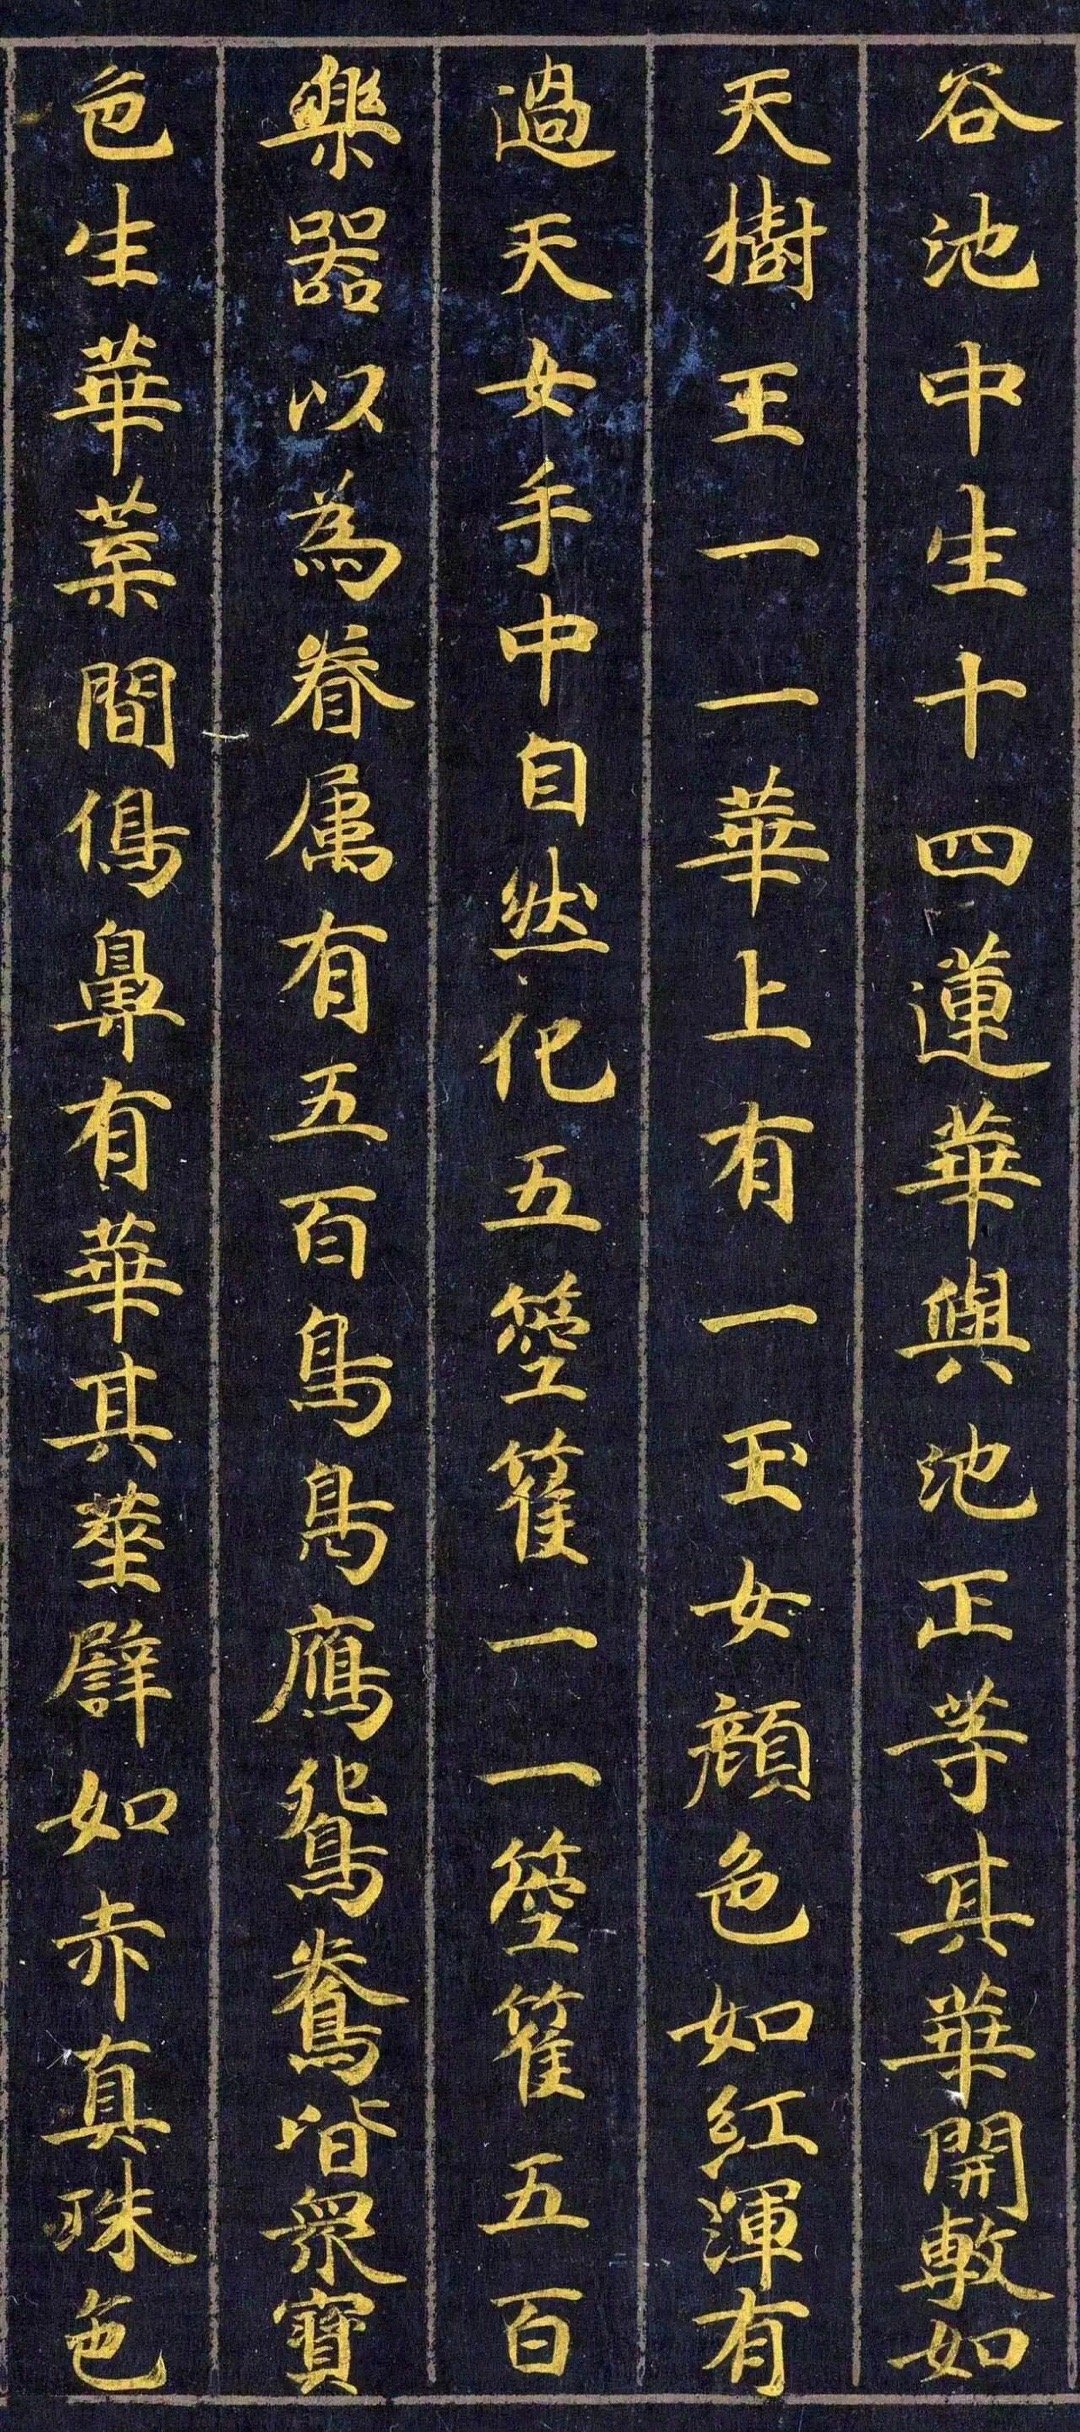 谷池中生十四蓮華與池正等其華開敷如
天樹王一一華上有一玉女顏色如紅渾有
過天女手中自然化五箜篌一一箜篌五百
樂器以為眷属有五百鳥鳧鴈鴛鴦皆衆寶
色生華葉間傷鼻有華其莖譬如赤真珠色